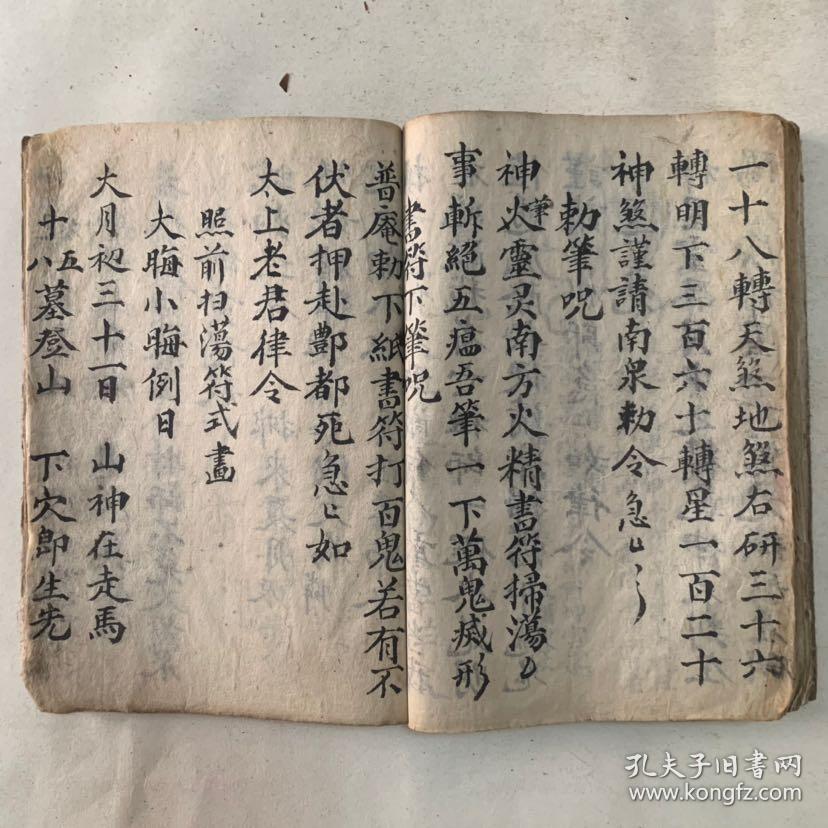 一十八轉天煞地煞右研三十六
轉明下三百六十轉星一百二十
神煞謹請南泉勅令急〻
勅筆咒
神筆火靈灵南方火精書符掃蕩〻
事斬絕五瘟吾筆一下萬鬼滅形
書符下筆咒
普庵勅下紙書符打百鬼若有不
伏者押赴酆都死急〻如
太上老君律令
照前扫蕩符式畫
大晦小晦例日
大月初三十一日 山神在走馬
十五八墓登山 下穴郎生先
孔夫子旧书网
www.kongfz.com